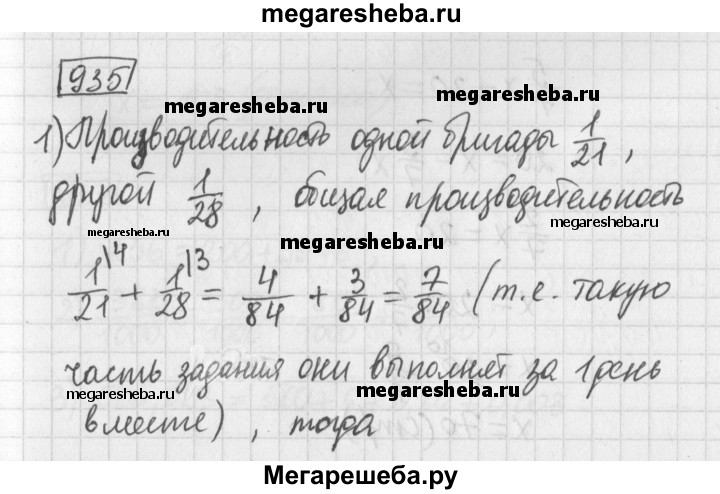 megaresheba.ru
935
megaresheba.ru megaresheba.ru
1) Производительность одной бригады 1/21 ,
другой 1/28 , общая производительность
megaresheba.ru megaresheba.ru megaresheba.ru
1/21 \4 + 1/28 \3 = 4/84 + 3/84 = 7/84 (т.е. такую
часть задания они выполнят за 1 день
megaresheba.ru megaresheba.ru
вместе) , тогда
Мегарешеба.ру